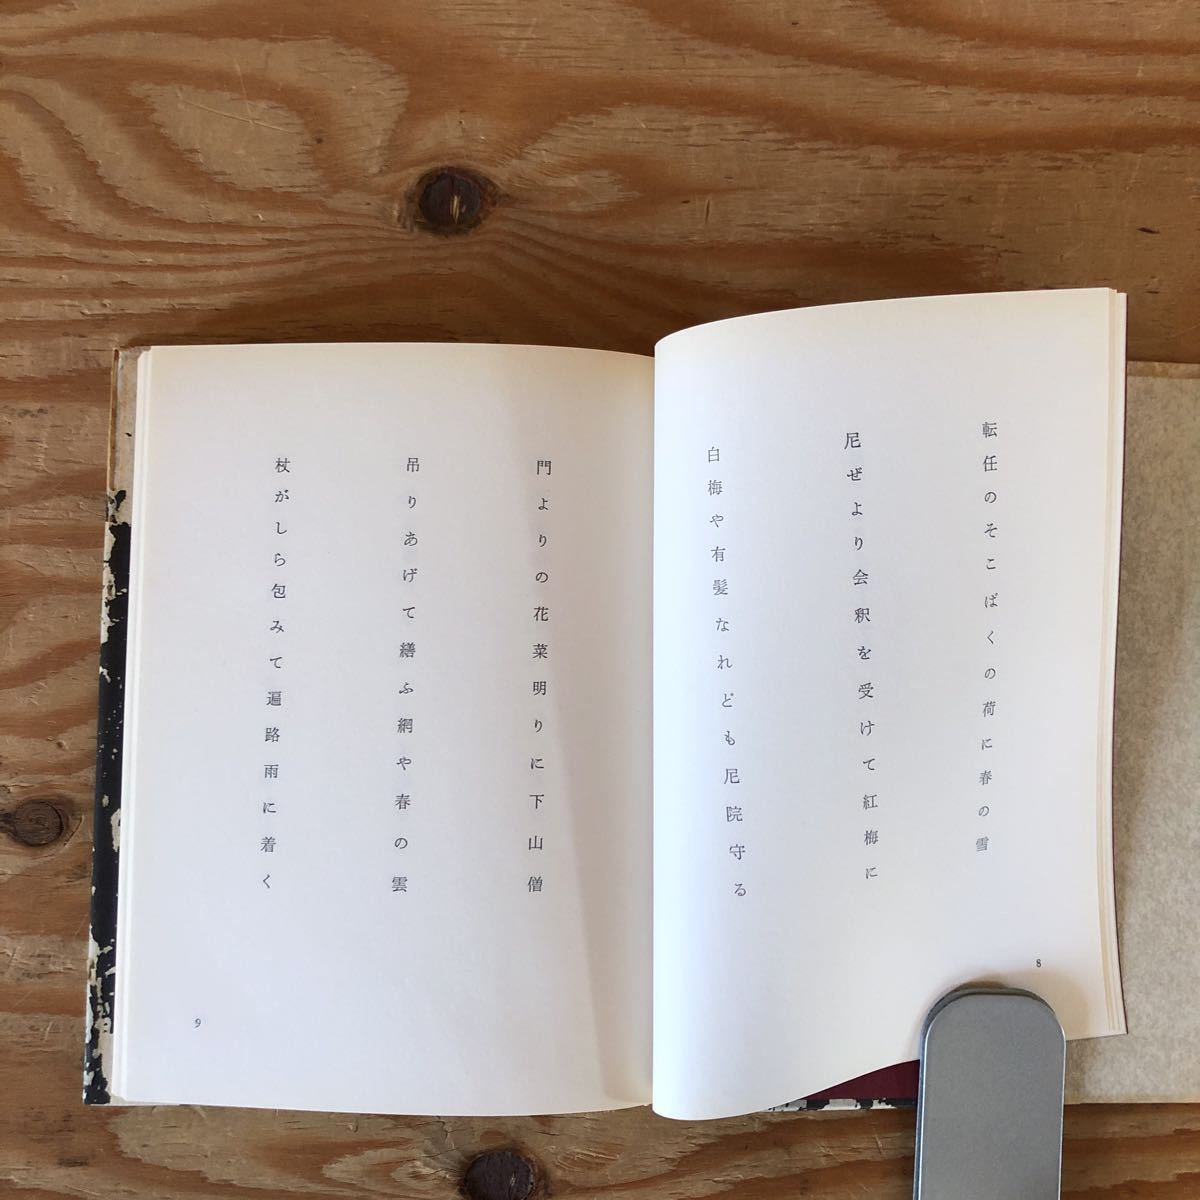 転任のそこばくの荷に春の雪
尼ぜより会釈を受けて紅梅に
白梅や有髪なれども尼院守る
8
門よりの花菜明りに下山僧
吊りあげて繕ふ網や春の雲
杖がしら包みて遍路雨に着く
9